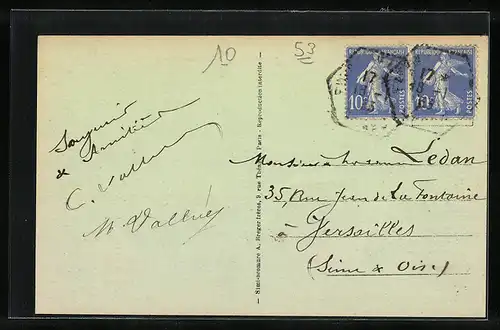 10
53
RÉPUBLIQUE FRANÇAISE
10c
POSTES
RÉPUBLIQUE FRANÇAISE
10c
POSTES
17
17
Souvenir
& Amitiés
C. Vallée
M. Vallée
Simi-bromure A. Breger frères, 9 rue Thénard, Paris - Reproduction interdite -
Monsieur Ledan
35, Rue Jean de La Fontaine
à Versailles
(Seine & Oise)